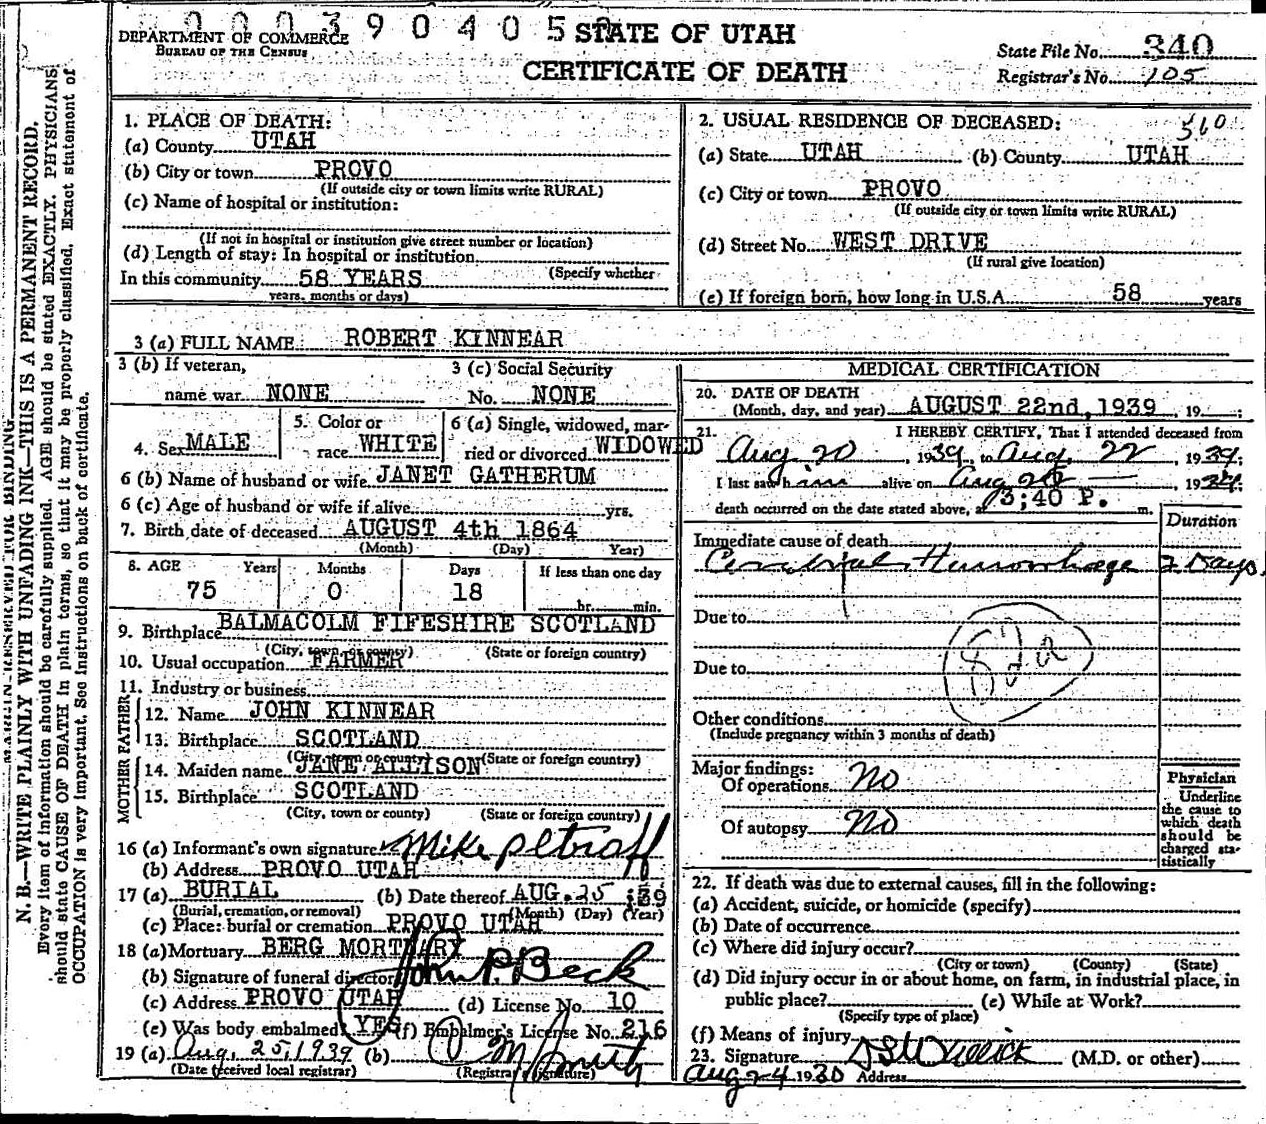 0003904052
STATE OF UTAH
DEPARTMENT OF COMMERCE
BUREAU OF THE CENSUS
CERTIFICATE OF DEATH
State File No. 340
Registrar's No. 105
N. B.—WRITE PLAINLY WITH UNFADING INK—THIS IS A PERMANENT RECORD.
Every item of information should be carefully supplied. AGE should be stated EXACTLY. PHYSICIANS
should state CAUSE OF DEATH in plain terms, so that it may be properly classified. Exact statement of
OCCUPATION is very important. See instructions on back of certificate.
1. PLACE OF DEATH:
(a) County UTAH
(b) City or town PROVO
(If outside city or town limits write RURAL)
(c) Name of hospital or institution:
(If not in hospital or institution give street number or location)
(d) Length of stay: In hospital or institution
(Specify whether
In this community 58 YEARS
years, months or days)
2. USUAL RESIDENCE OF DECEASED: 510
(a) State UTAH (b) County UTAH
(c) City or town PROVO
(If outside city or town limits write RURAL)
(d) Street No. WEST DRIVE
(If rural give location)
(e) If foreign born, how long in U.S.A. 58 years
3 (a) FULL NAME ROBERT KINNEAR
3 (b) If veteran,
name war NONE
3 (c) Social Security
No. NONE
4. Sex MALE
5. Color or
race WHITE
6 (a) Single, widowed, mar-
ried or divorced WIDOWED
6 (b) Name of husband or wife JANET GATHERUM
6 (c) Age of husband or wife if alive yrs.
7. Birth date of deceased AUGUST 4th 1864
(Month) (Day) Year)
8. AGE Years Months Days If less than one day
75 0 18 hr. min.
9. Birthplace BALMACOLM FIFESHIRE SCOTLAND
(City, town or county) (State or foreign country)
10. Usual occupation FARMER
11. Industry or business
FATHER
12. Name JOHN KINNEAR
13. Birthplace SCOTLAND
(City, town or county) (State or foreign country)
MOTHER
14. Maiden name JANE ALLISON
15. Birthplace SCOTLAND
(City, town or county) (State or foreign country)
16 (a) Informant's own signature Mike Petroff
(b) Address PROVO UTAH
17 (a) BURIAL (b) Date thereof AUG. 25 '39
(Burial, cremation, or removal) (Month) (Day) (Year)
(c) Place: burial or cremation PROVO UTAH
18 (a) Mortuary BERG MORTUARY
(b) Signature of funeral director John P. Beck
(c) Address PROVO UTAH (d) License No. 10
(e) Was body embalmed YES (f) Embalmer's License No. 216
19 (a) Aug. 25, 1939 (b)
(Date received local registrar) (Registrar's signature)
MEDICAL CERTIFICATION
20. DATE OF DEATH
(Month, day, and year) AUGUST 22nd, 1939, 19 ;
21. I HEREBY CERTIFY, That I attended deceased from
Aug 20, 1939, to Aug. 22, 1939;
I last saw him alive on Aug 1939;
death occurred on the date stated above, at 3:40 P. m.
Duration
Immediate cause of death
Cerebral Hemorrhage 2 Days
Due to
82a
Due to
Other conditions
(Include pregnancy within 3 months of death)
Major findings:
Of operations No
Of autopsy No
Physician
Underline
the cause to
which death
should be
charged sta-
tistically
22. If death was due to external causes, fill in the following:
(a) Accident, suicide, or homicide (specify)
(b) Date of occurrence
(c) Where did injury occur?
(City or town) (County) (State)
(d) Did injury occur in or about home, on farm, in industrial place, in
public place? (e) While at Work?
(Specify type of place)
(f) Means of injury
23. Signature (M.D. or other)
Aug 24 1930 Address